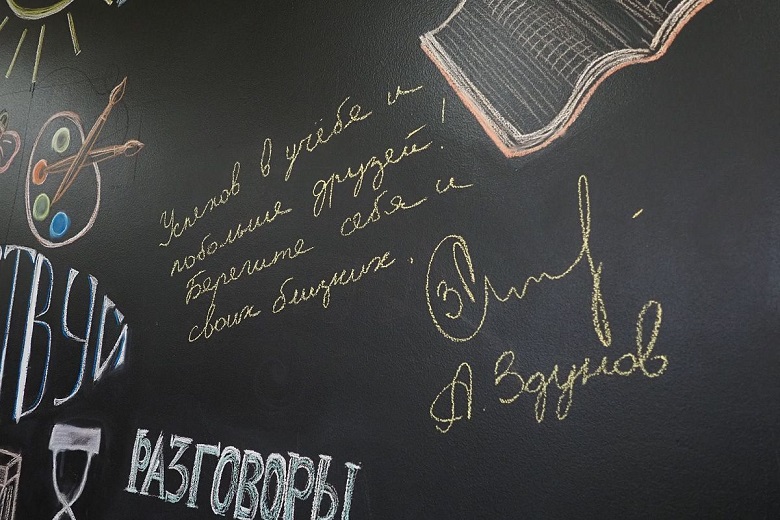 Успехов в учёбе и
побольше друзей!
Берегите себя и
своих близких.
А. Здунов
ТВУЙ
РАЗГОВОРЫ